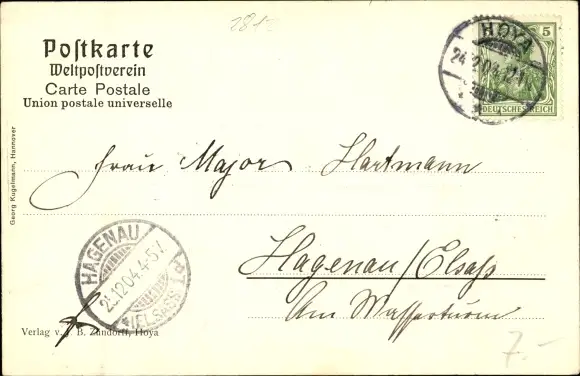 281.-
Postkarte
Weltpostverein
Carte Postale
Union postale universelle
HOYA
24.12.04.12-1
5
DEUTSCHES REICH
Georg Kugelmann, Hannover
Frau Major Hartmann
Hagenau/Elsass
Am Wasserturm
HAGENAU
25.12.04.4-5V
*(ELSASS)
Verlag v. J. B. Zündorff, Hoya
7.-